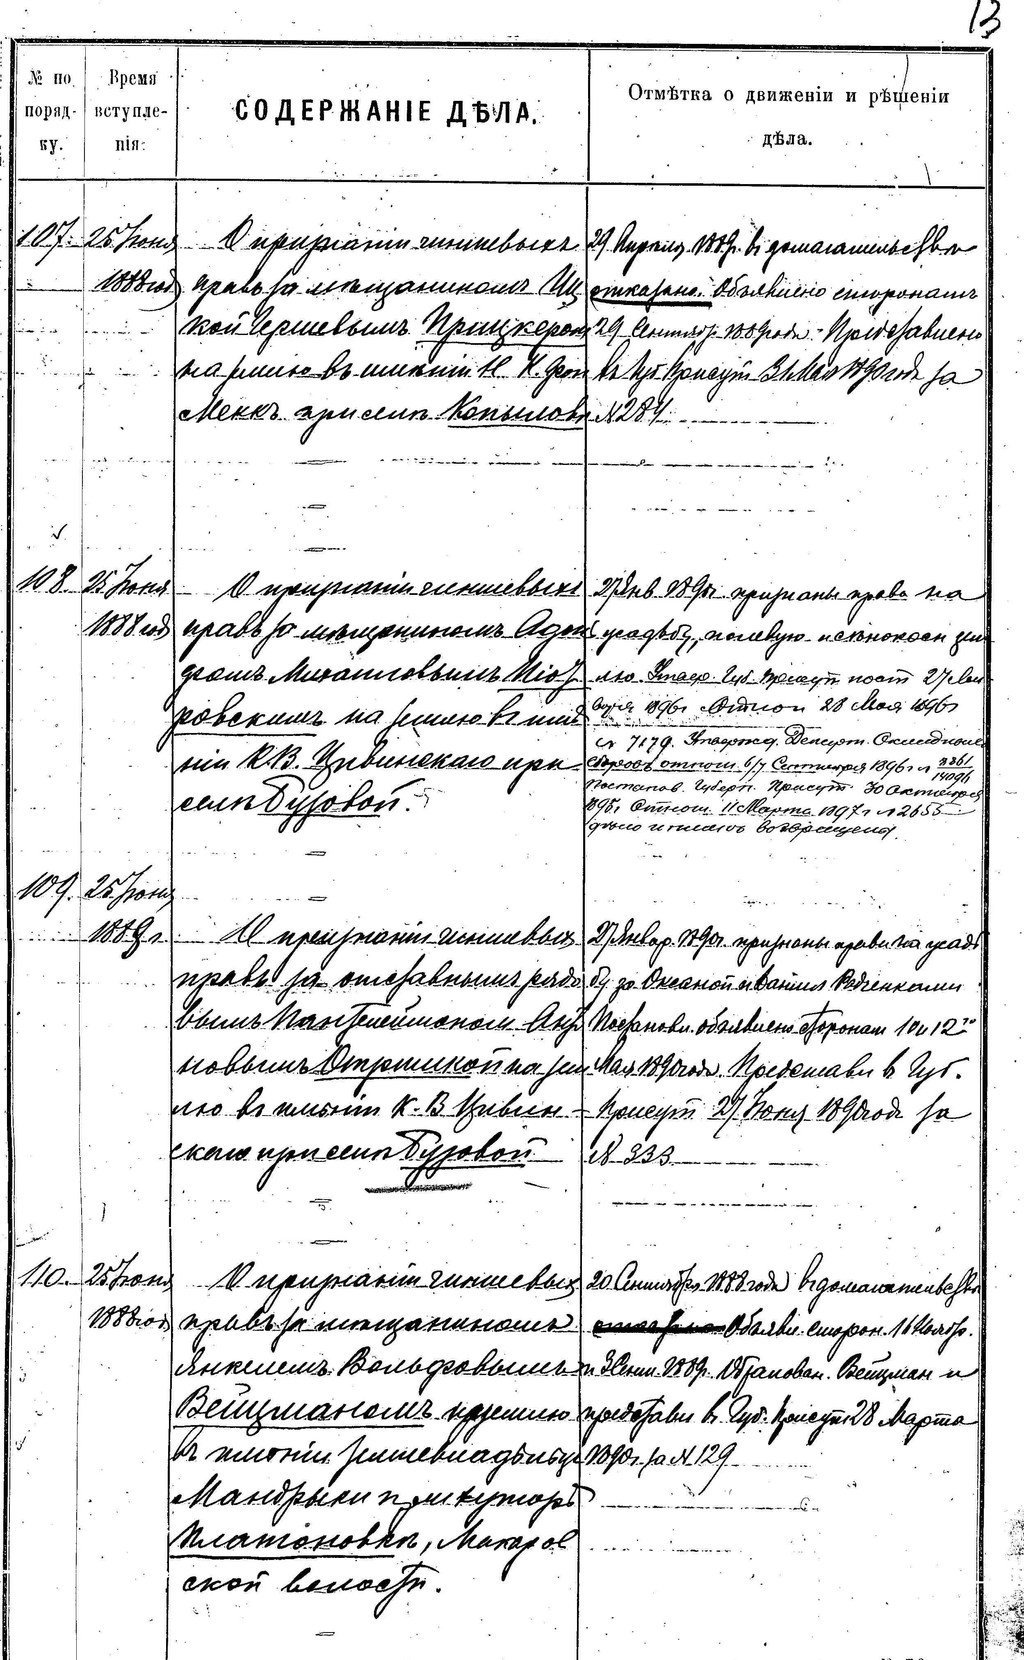 13
№ по поряд- ку.
Время вступле- нія.
СОДЕРЖАНІЕ ДѢЛА.
Отмѣтка о движеніи и рѣшеніи
дѣла.
107. 25 Іюня
1888 год
О признаніи чиншевыхъ
правъ за мѣщаниномъ Иц
кой Берковымъ Прицкеромъ
на землю въ имѣніи Н. К. фон
Меккъ при селѣ Копыловѣ
29 Апрѣля 1889г. въ домагательствѣ
отказано. Объявлено сторонамъ
29 Сентябр. 1889 года. Представлено
въ Губ. Присут. 31 Мая 1890 года за
№ 284.
108. 25 Іюня
1888 год
О признаніи чиншевыхъ
правъ за мѣщаниномъ
Михайловымъ
ровскимъ на землю въ имѣ
ніи К. В. Цивинскаго при
селѣ Бузовой.
27 Янв. 1890г. признаны права на
усадьбу, полевую и сѣнокосн. зем
лю. Утвер. Губ. Присут. пост. 27
1896г. Отнош. 28 Мая 1896г.
№ 7179. Утвержд. Департ. Окладныхъ
Сборовъ отнош. 6/7 Сентября 1896г. №
Постанов. Губерн. Присут. 30 Октября
1896г. Отнош. 11 Марта 1897г. № 2655
дѣло и планъ возвращены.
109. 25 Іюня
1888г.
О признаніи чиншевыхъ
правъ за отставнымъ рядо
вымъ Пантелеймоном
новымъ на зем
лю въ имѣніи К. В. Цивин
скаго при селѣ Бузовой
27 Январ. 1890г. признаны права на усадь
бу за Оксаной и Радченками
Постановл. объявлено сторонам 10 и 12го
Мая 1890 года. Представл. въ Губ.
Присут. 27 Іюня 1890 года за
№ 333
110. 25 Іюня
1888 год
О признаніи чиншевыхъ
правъ за мѣщаниномъ
Янкелемъ Вольфовымъ
Вейцманомъ на землю
въ имѣніи землевладѣльца
Мандрыки при хуторѣ
Платоновкѣ, Макаров
ской волости.
20 Сентября 1888 года въ домагательствѣ
Объявл. сторон. 16 Ноябр.
и 3 Сент. 1889г. Обжалован. Вейцман и
представл. въ Губ. Присут. 28 Марта
1890г. за № 129